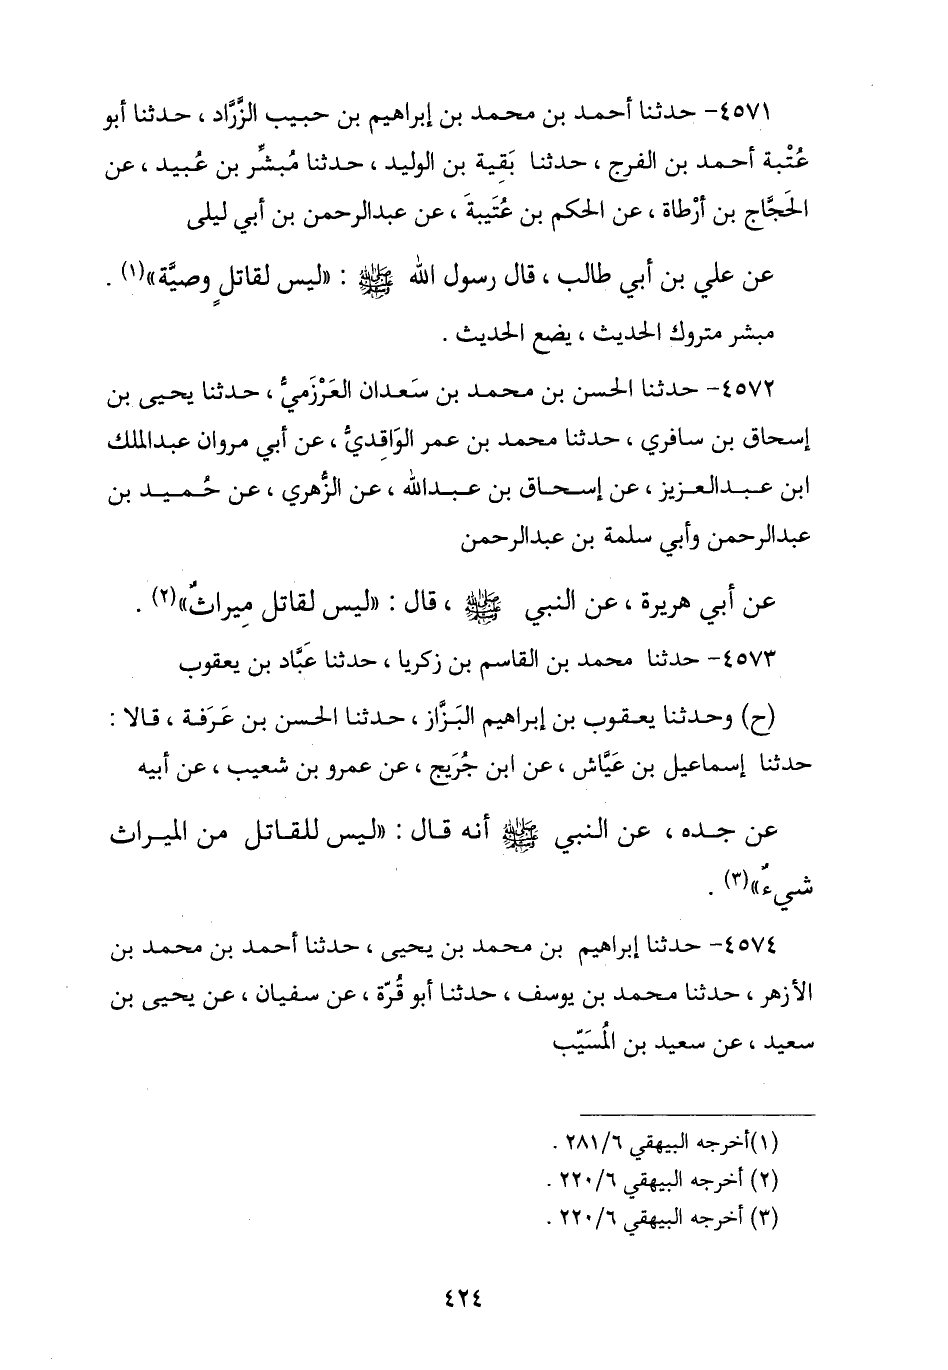 ٤٥٧١- حدثنا أحمد بن محمد بن إبراهيم بن حبيب الزَّرَّاد ، حدثنا أبو
عُتْبة أحمد بن الفرج ، حدثنا بَقِية بن الوليد ، حدثنا مُبشِّر بن عُبيد ، عن
الحَجَّاج بن أرْطاة ، عن الحكم بن عُتَيبةَ ، عن عبدالرحمن بن أبي ليلى
عن علي بن أبي طالب ، قال رسول الله ﷺ : «ليس لقاتلٍ وصيَّة»(١) .
مبشر متروك الحديث ، يضع الحديث .
٤٥٧٢- حدثنا الحسن بن محمد بن سَعدان العَرْزَميُّ ، حدثنا يحيى بن
إسحاق بن سافري ، حدثنا محمد بن عمر الوَاقِديُّ ، عن أبي مروان عبدالملك
ابن عبدالعزيز ، عن إسحاق بن عبدالله ، عن الزُّهري ، عن حُميد بن
عبدالرحمن وأبي سلمة بن عبدالرحمن
عن أبي هريرة ، عن النبي ﷺ ، قال : «ليس لقاتل مِيراثٌ»(٢) .
٤٥٧٣- حدثنا محمد بن القاسم بن زكريا ، حدثنا عَبَّاد بن يعقوب
(ح) وحدثنا يعقوب بن إبراهيم البَزَّاز ، حدثنا الحسن بن عَرَفة ، قالا :
حدثنا إسماعيل بن عَيَّاش ، عن ابن جُرَيج ، عن عمرو بن شعيب ، عن أبيه
عن جده ، عن النبي ﷺ أنه قال : «ليس للقاتل من الميراث
شيءٌ»(٣) .
٤٥٧٤- حدثنا إبراهيم بن محمد بن يحيى ، حدثنا أحمد بن محمد بن
الأزهر ، حدثنا محمد بن يوسف ، حدثنا أبو قُرّة ، عن سفيان ، عن يحيى بن
سعيد ، عن سعيد بن المُسَيّب
(١)أخرجه البيهقي ٢٨١/٦ .
(٢) أخرجه البيهقي ٢٢٠/٦ .
(٣) أخرجه البيهقي ٢٢٠/٦ .
٤٢٤